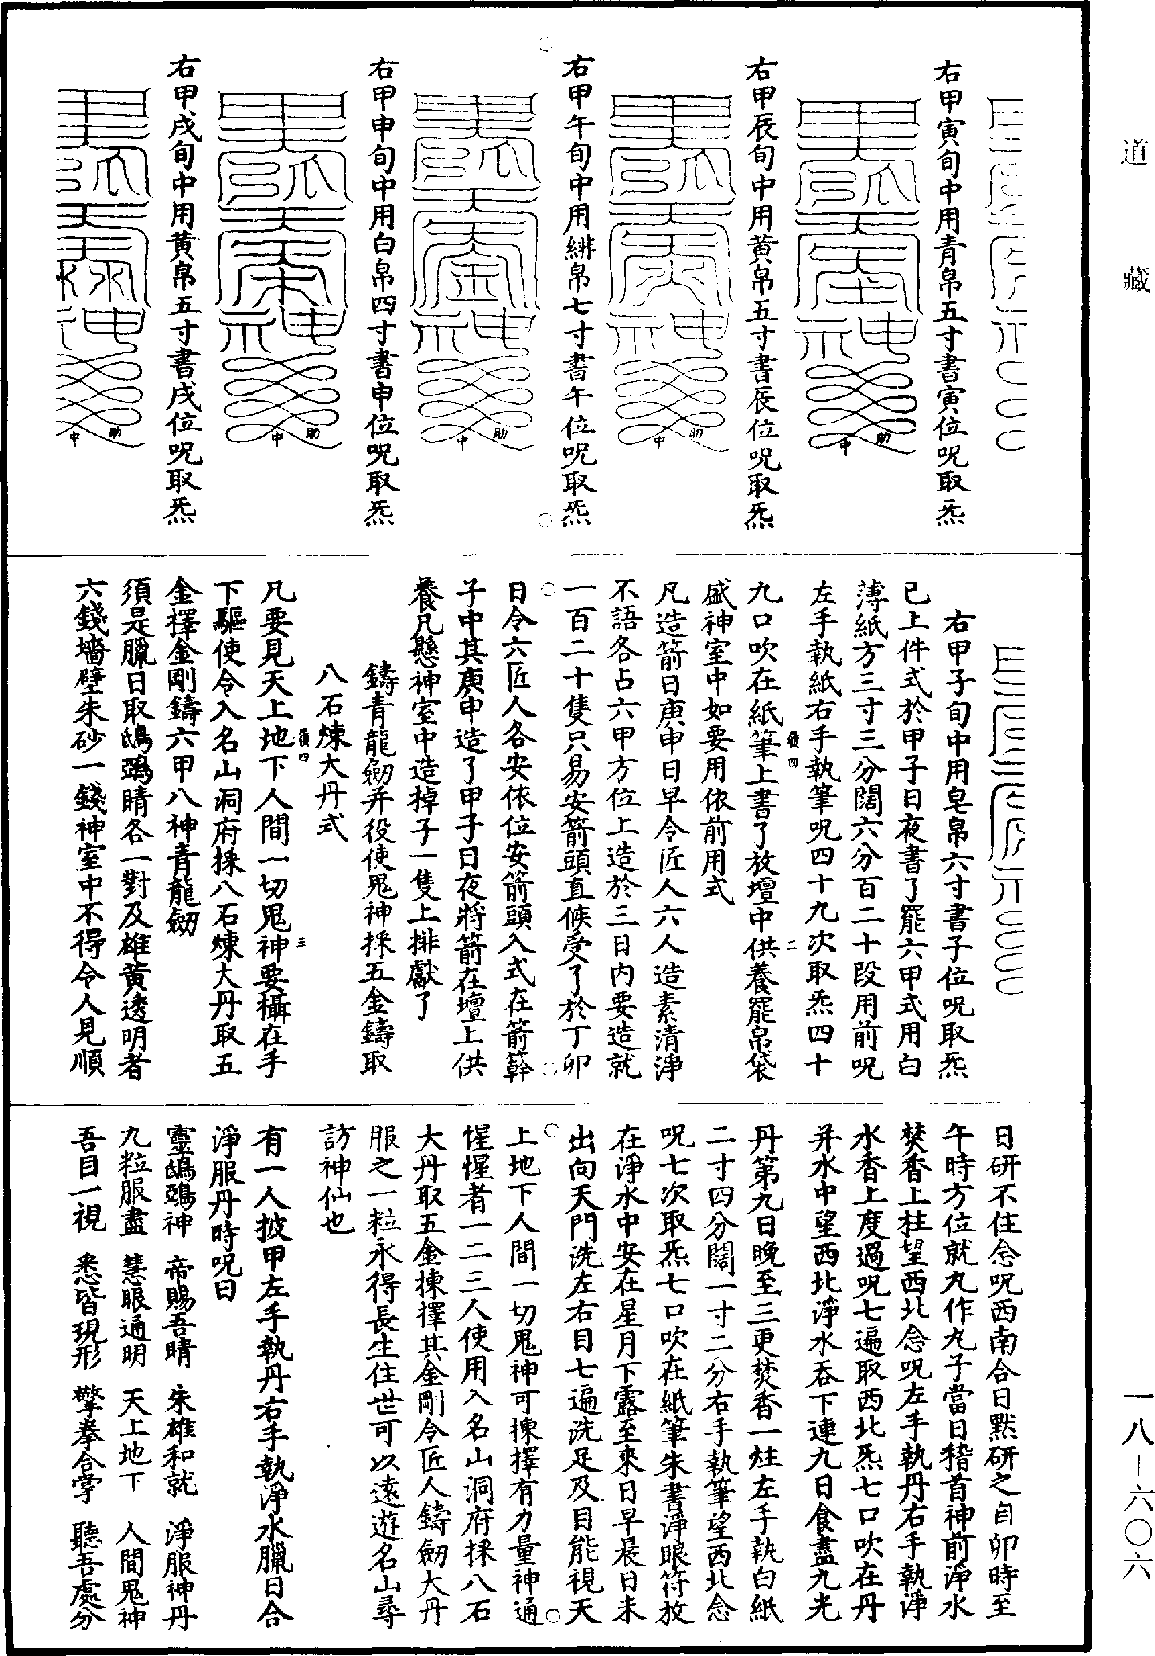 道藏
右甲寅旬中用青帛五寸書寅位呪取炁
右甲辰旬中用黄帛五寸書辰位呪取炁
右甲午旬中用緋帛七寸書午位呪取炁
右甲申旬中用白帛四寸書申位呪取炁
右甲戌旬中用黄帛五寸書戌位呪取炁
右甲子旬中用皂帛六寸書子位呪取炁
已上件式於甲子日夜書了罷六甲式用白
薄紙方三寸三分闊六分百二十段用前呪
左手執紙右手執筆呪四十九次取炁四十
九口吹在紙筆上書了放壇中供養罷帛袋
盛神室中如要用依前用式
凡造箭日庚申日早令匠人六人造素清淨
不語各占六甲方位上造於三日内要造就
一百二十隻只易安箭頭直候受了於丁卯
日令六匠人各安依位安箭頭入式在箭簳
子中其庚申造了甲子日夜將箭在壇上供
養凡懸神室中造棹子一隻上排獻了
鑄青龍劒并役使鬼神採五金鑄取
八石煉大丹式
凡要見天上地下人間一切鬼神要攝在手
下驅使令入名山洞府採八石煉大丹取五
金擇金剛鑄六甲八神青龍劒
須是臘日取鴟鴞睛各一對及雄黄透明者
六錢墻壁朱砂一錢神室中不得令人見順
日研不住念呪西南合日黙研之自卯時至
午時方位就丸作丸子當日稽首神前淨水
焚香上柱望西北念呪左手執丹右手執淨
水香上度過呪七遍取西北炁七口吹在丹
并水中望西北淨水吞下連九日食盡九光
丹第九日晚至三更焚香一炷左手執白紙
二寸四分闊一寸二分右手執筆望西北念
呪七次取炁七口吹在紙筆朱書淨眼符放
在淨水中安在星月下露至來日早晨日未
出向天門洗左右目七遍洗足及目能視天
上地下人間一切鬼神可揀擇有力量神通
惺惺者一二三人使用入名山洞府採八石
大丹取五金揀擇其金剛令匠人鑄劒大丹
服之一粒永得長生住世可以遠遊名山尋
訪神仙也
有一人披甲左手執丹右手執淨水臘日合
淨服丹時呪曰
靈鴟鴞神 帝賜吾睛 朱雄和就 淨服神丹
九粒服盡 慧眼通明 天上地下 人間鬼神
吾目一視 悉皆現形 擎拳合掌 聽吾處分
一八—六〇六